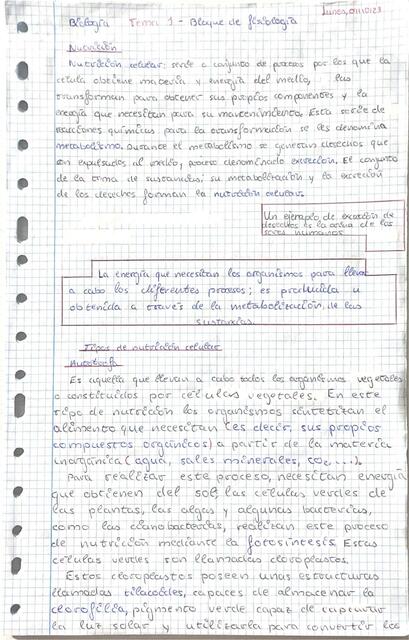 Lunes, 01/10/23
Biología Tema 1 - Bloque de fisiología
Nutrición
Nutrición celular: serie o conjunto de procesos por los que la
célula obtiene materia y energía del medio, las
transforman para obtener sus propios componentes y la
energía que necesitan para su mantenimiento. Esta serie de
reacciones químicas para la transformación se les denomina
metabolismo. Durante el metabolismo se generan desechos que
son expulsados al medio, proceso denominado excreción. El conjunto
de la toma de sustancias, su metabolización y la excreción
de los desechos forman la nutrición celular.
Un ejemplo de excreción de
desechos es la orina de los
seres humanos
La energía que necesitan los organismos para llevar
a cabo los diferentes procesos; es producida u
obtenida a través de la metabolización de las
sustancias.
Tipos de nutrición celular
Autótrofa
Es aquella que llevan a cabo todos los organismos vegetales
o constituidos por células vegetales. En este
tipo de nutrición los organismos sintetizan el
alimento que necesitan (es decir, sus propios
compuestos orgánicos) a partir de la materia
inorgánica (agua, sales minerales, CO2, ...).
Para realizar este proceso, necesitan energía
que obtienen del sol, las células verdes de
las plantas, las algas y algunas bacterias,
como las cianobacterias, realizan este proceso
de nutrición mediante la fotosíntesis. Estas
células verdes son llamadas cloroplastos.
Estos cloroplastos poseen unas estructuras
llamadas tilacoides, capaces de almacenar la
clorofila, pigmento verde capaz de capturar
la luz solar y utilizarla para convertir los